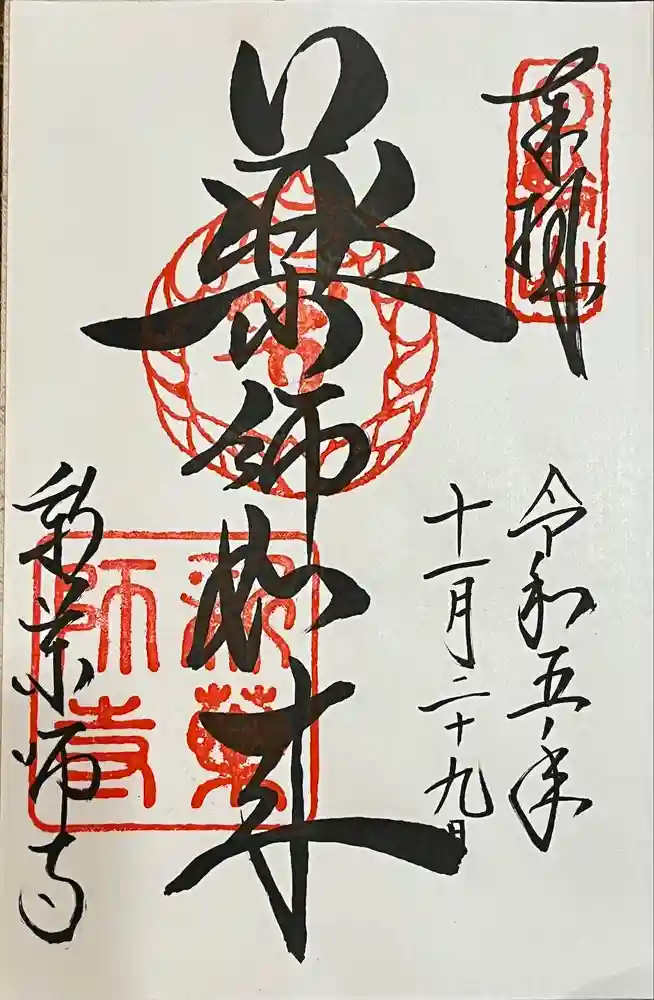 奉拝
令和五年
十一月二十九日
薬師如来
新薬師寺
新薬
師寺